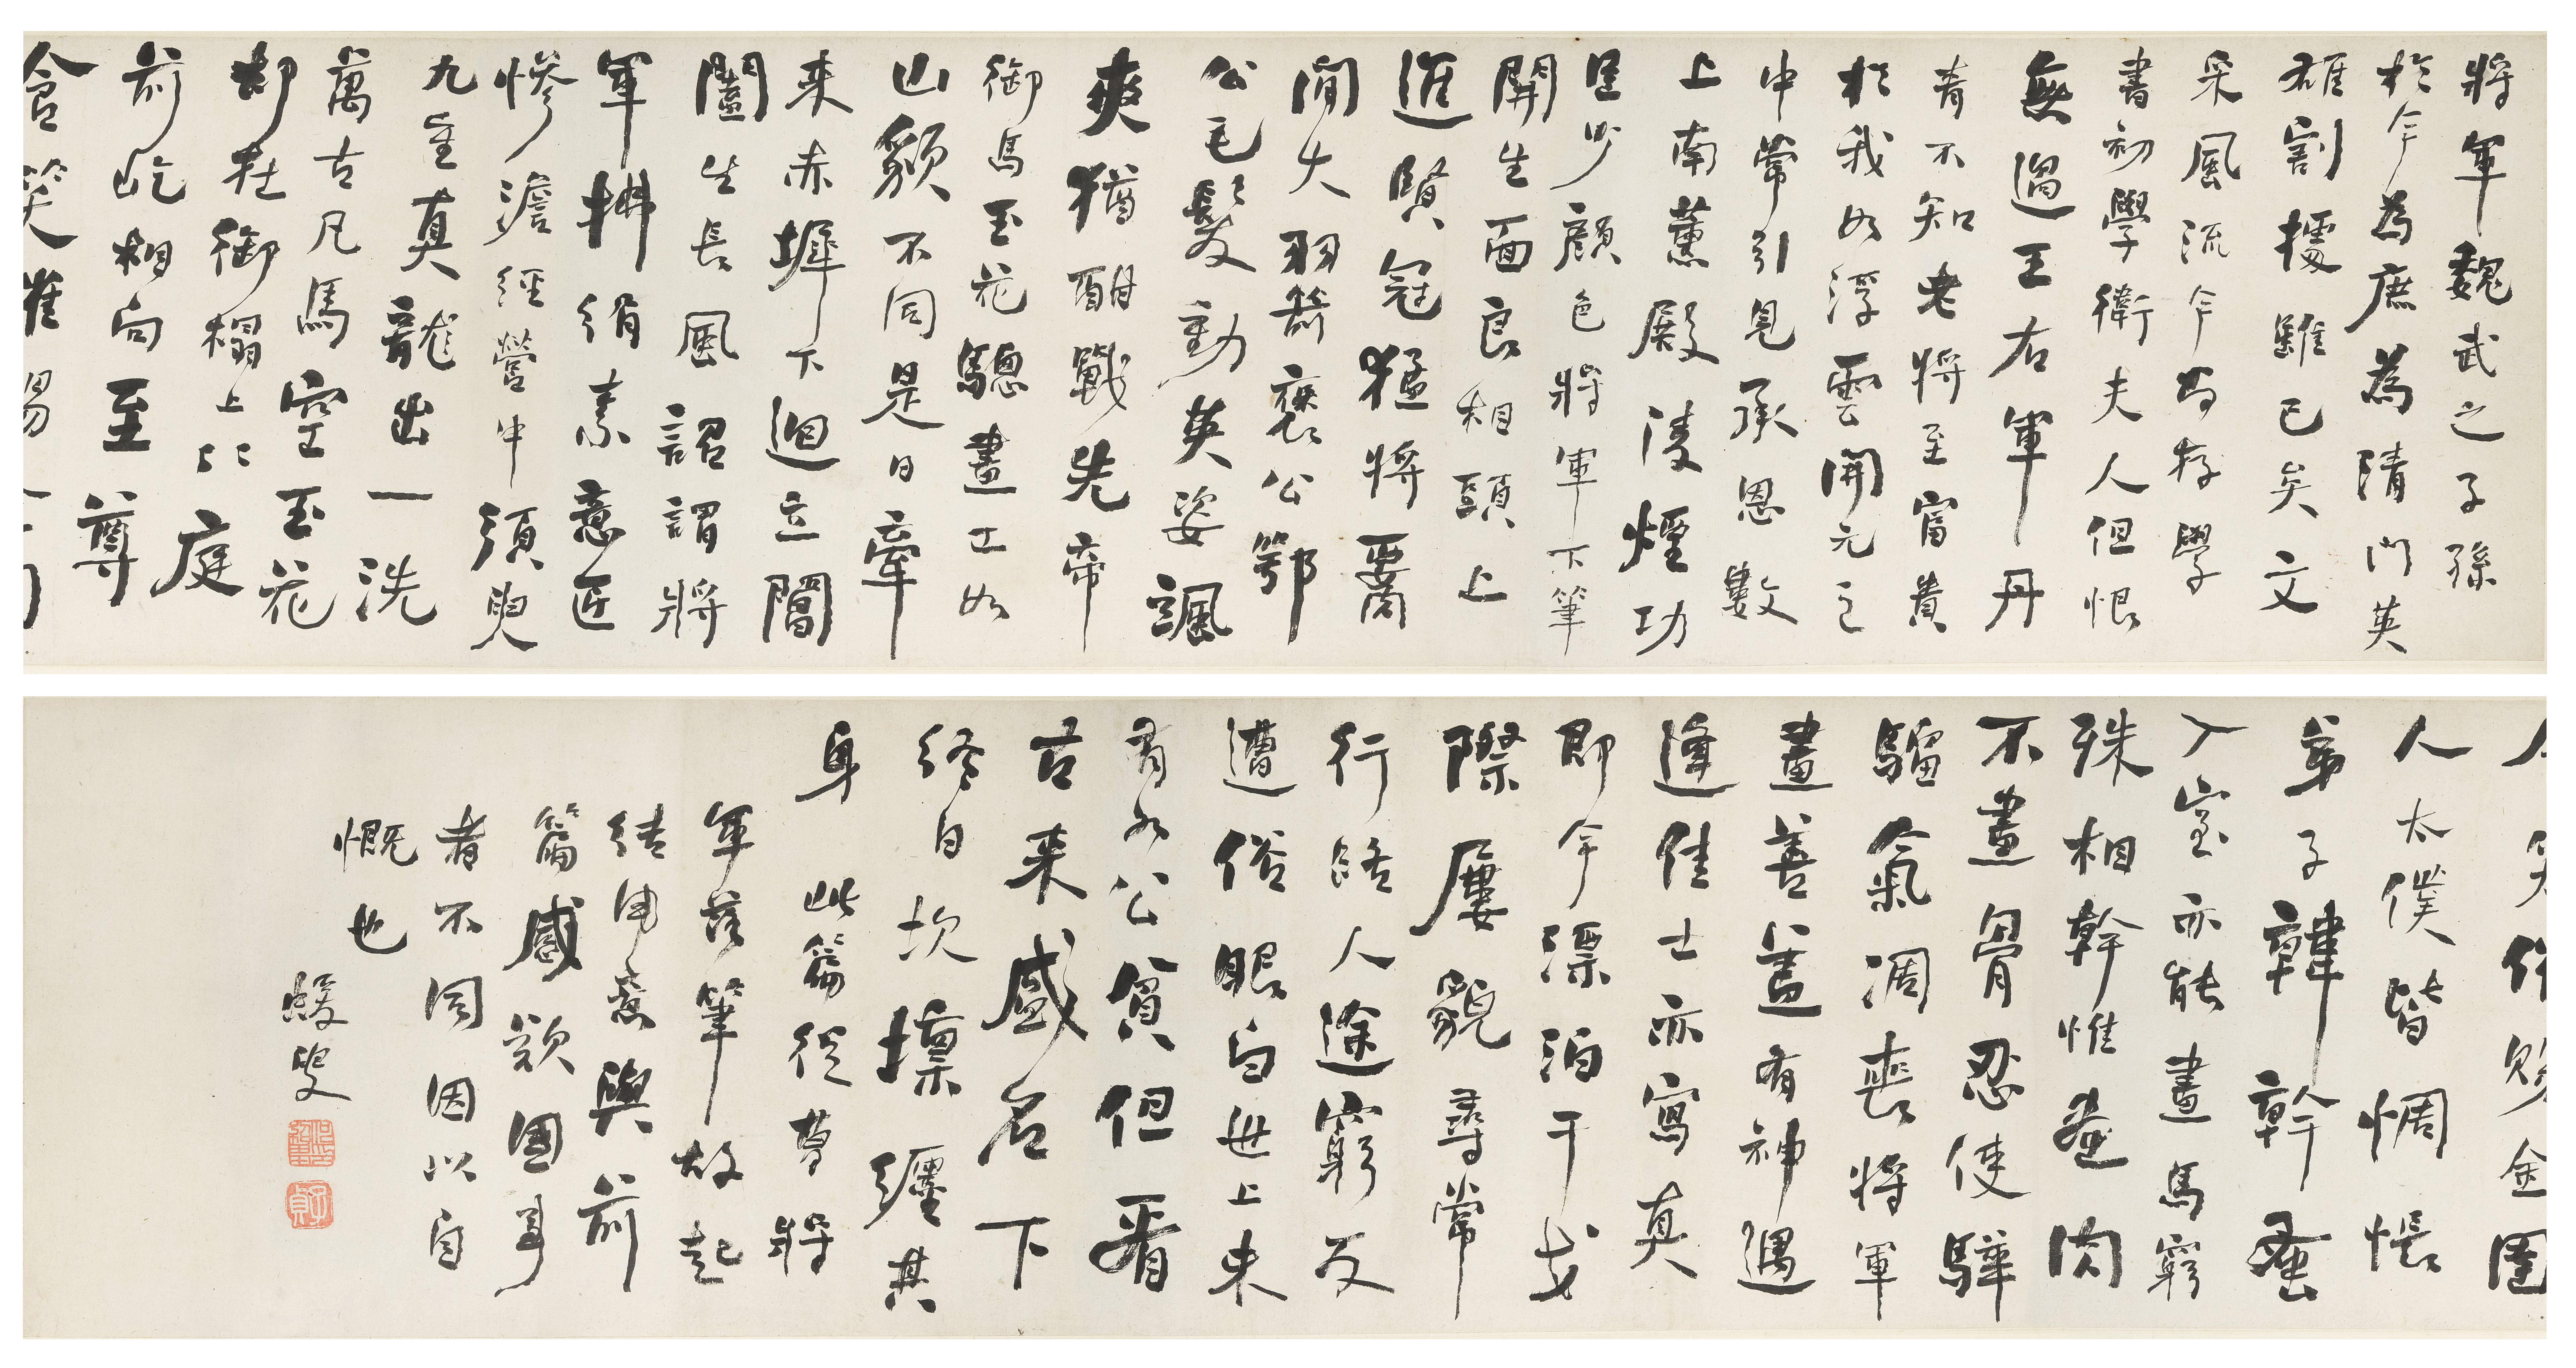 將軍魏武之子孫
於今為庶為清門英
雄割據雖已矣文
采風流今尚存學
書初學衛夫人但恨
無過王右軍丹
青不知老將至富貴
於我如浮雲開元之
中常引見承恩數
上南薰殿淩煙功
臣少顏色將軍下筆
開生面良相頭上
進賢冠猛將腰
間大羽箭褒公鄂
公毛髮動英姿颯
爽猶酣戰先帝
御馬玉花驄畫工如
山貌不同是日牽
来赤墀下迥立閶
闔生長風詔謂將
軍拂絹素意匠
慘澹經營中須臾
九重真龍出一洗
萬古凡馬空玉花
却在御榻上〻〻庭
前屹相向至尊
含笑催賜金圉
含笑催賜金圉
人太僕皆惆悵
弟子韓幹蚤
入室亦能畫馬窮
殊相幹惟畫肉
不畫骨忍使驊
騮氣凋喪將軍
畫善蓋有神遇
逢佳士亦寫真
即今漂泊干戈
際屢貌尋常
行路人途窮反
遭俗眼白世上未
有如公貧但看
古来盛名下
終日坎壈纏其
身 此篇從曹將
軍落筆故起
結用意與前
篇感歎國事
者不同因以自
慨也
蝯叟
子貞